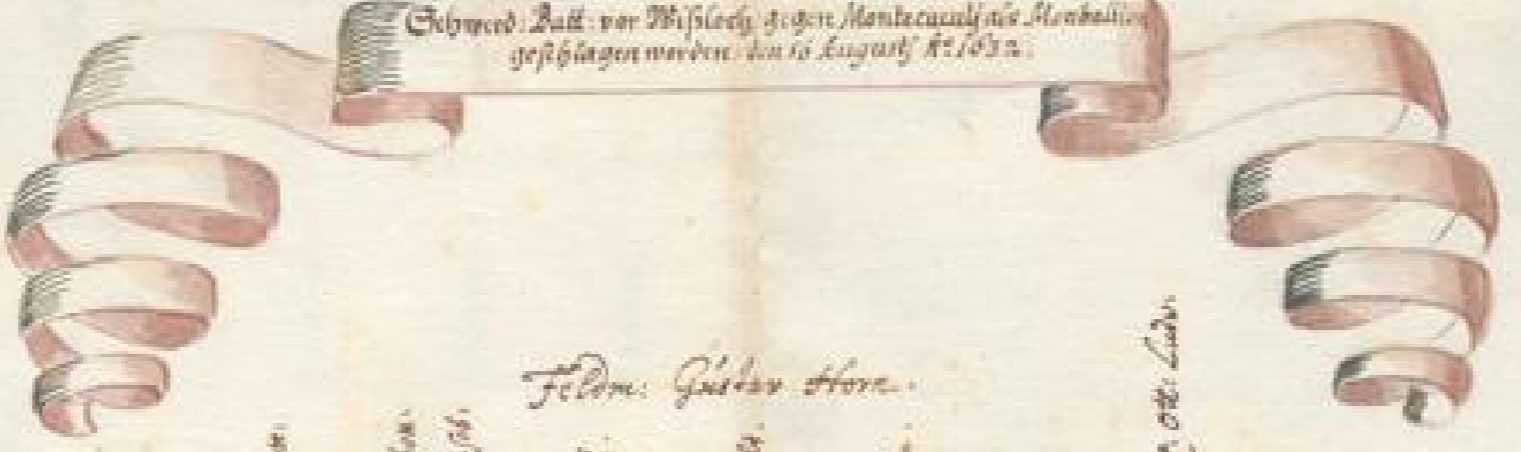 Schwed: Batt: vor Wißloch, gegen Montecuculj als Monbaillon
geschlagen worden den 16 Augustj Aº 1632.
Feldm: Gustav Horn.
Ott: Ludw: